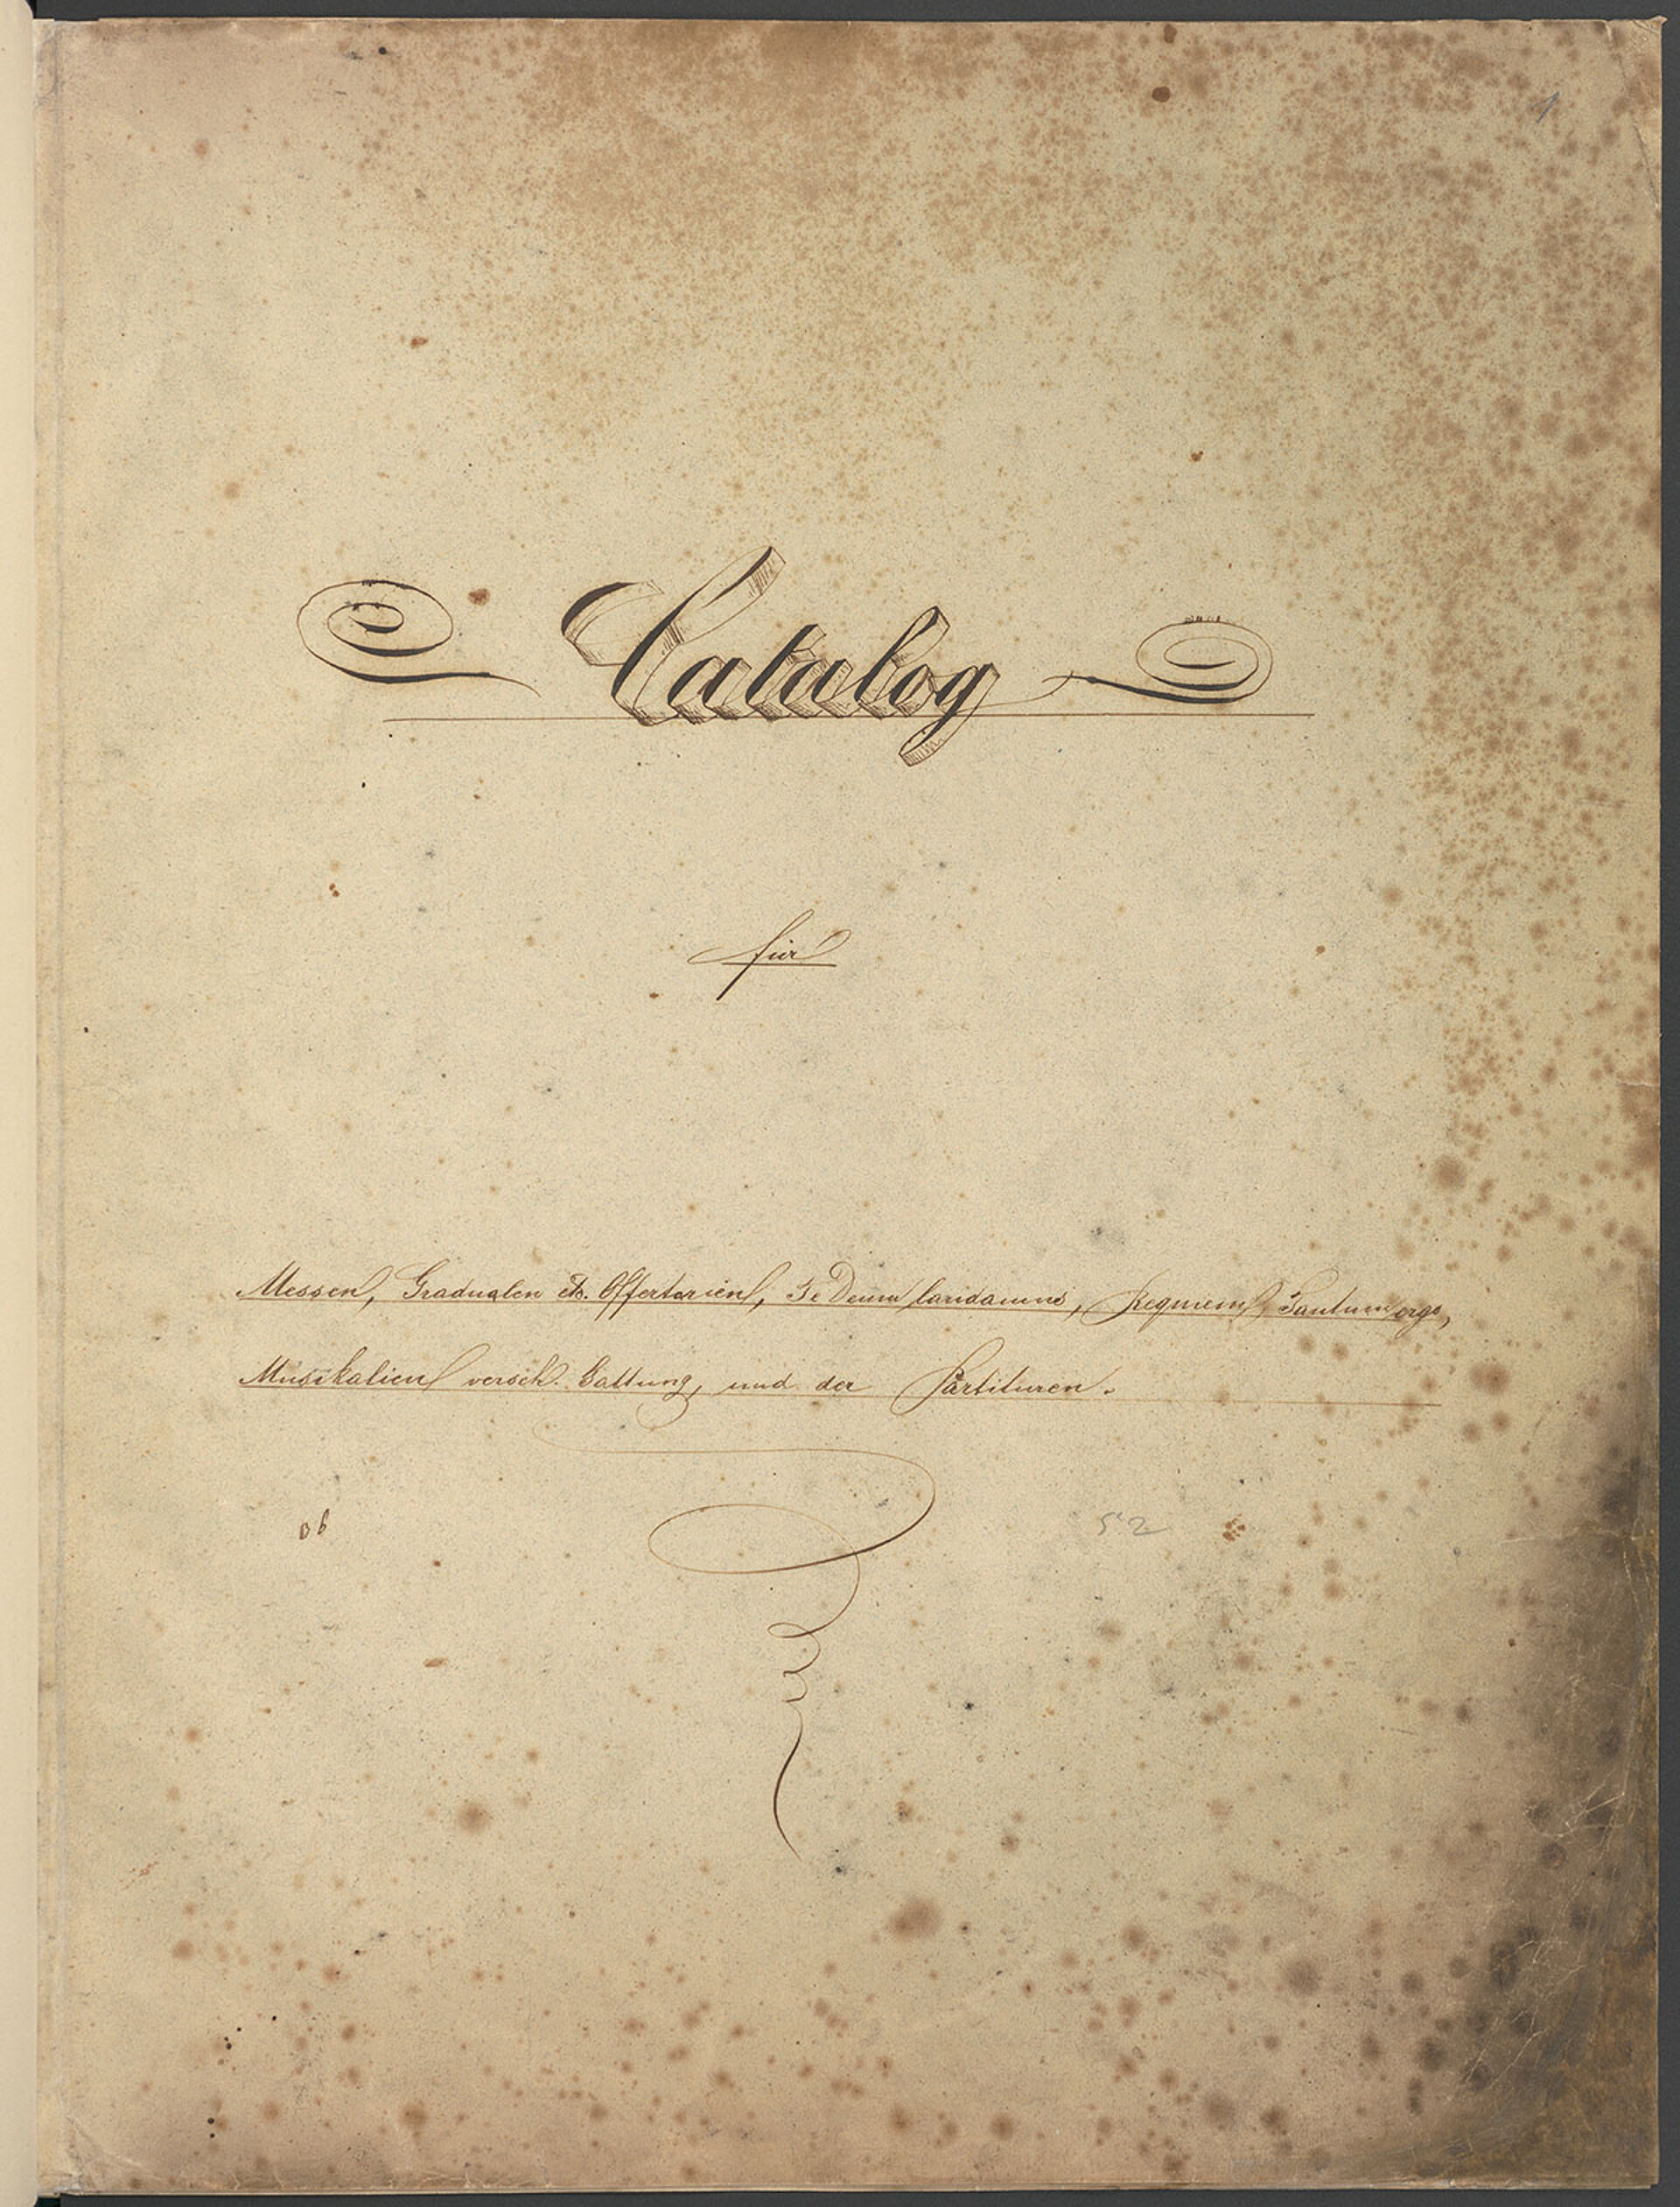 1
Catalog
für
Messen, Gradualen etc. Offertorien, Te Deum laudamus, Requiem, Tantum ergo,
Musikalien versch. Gattung, und der Partituren.
52